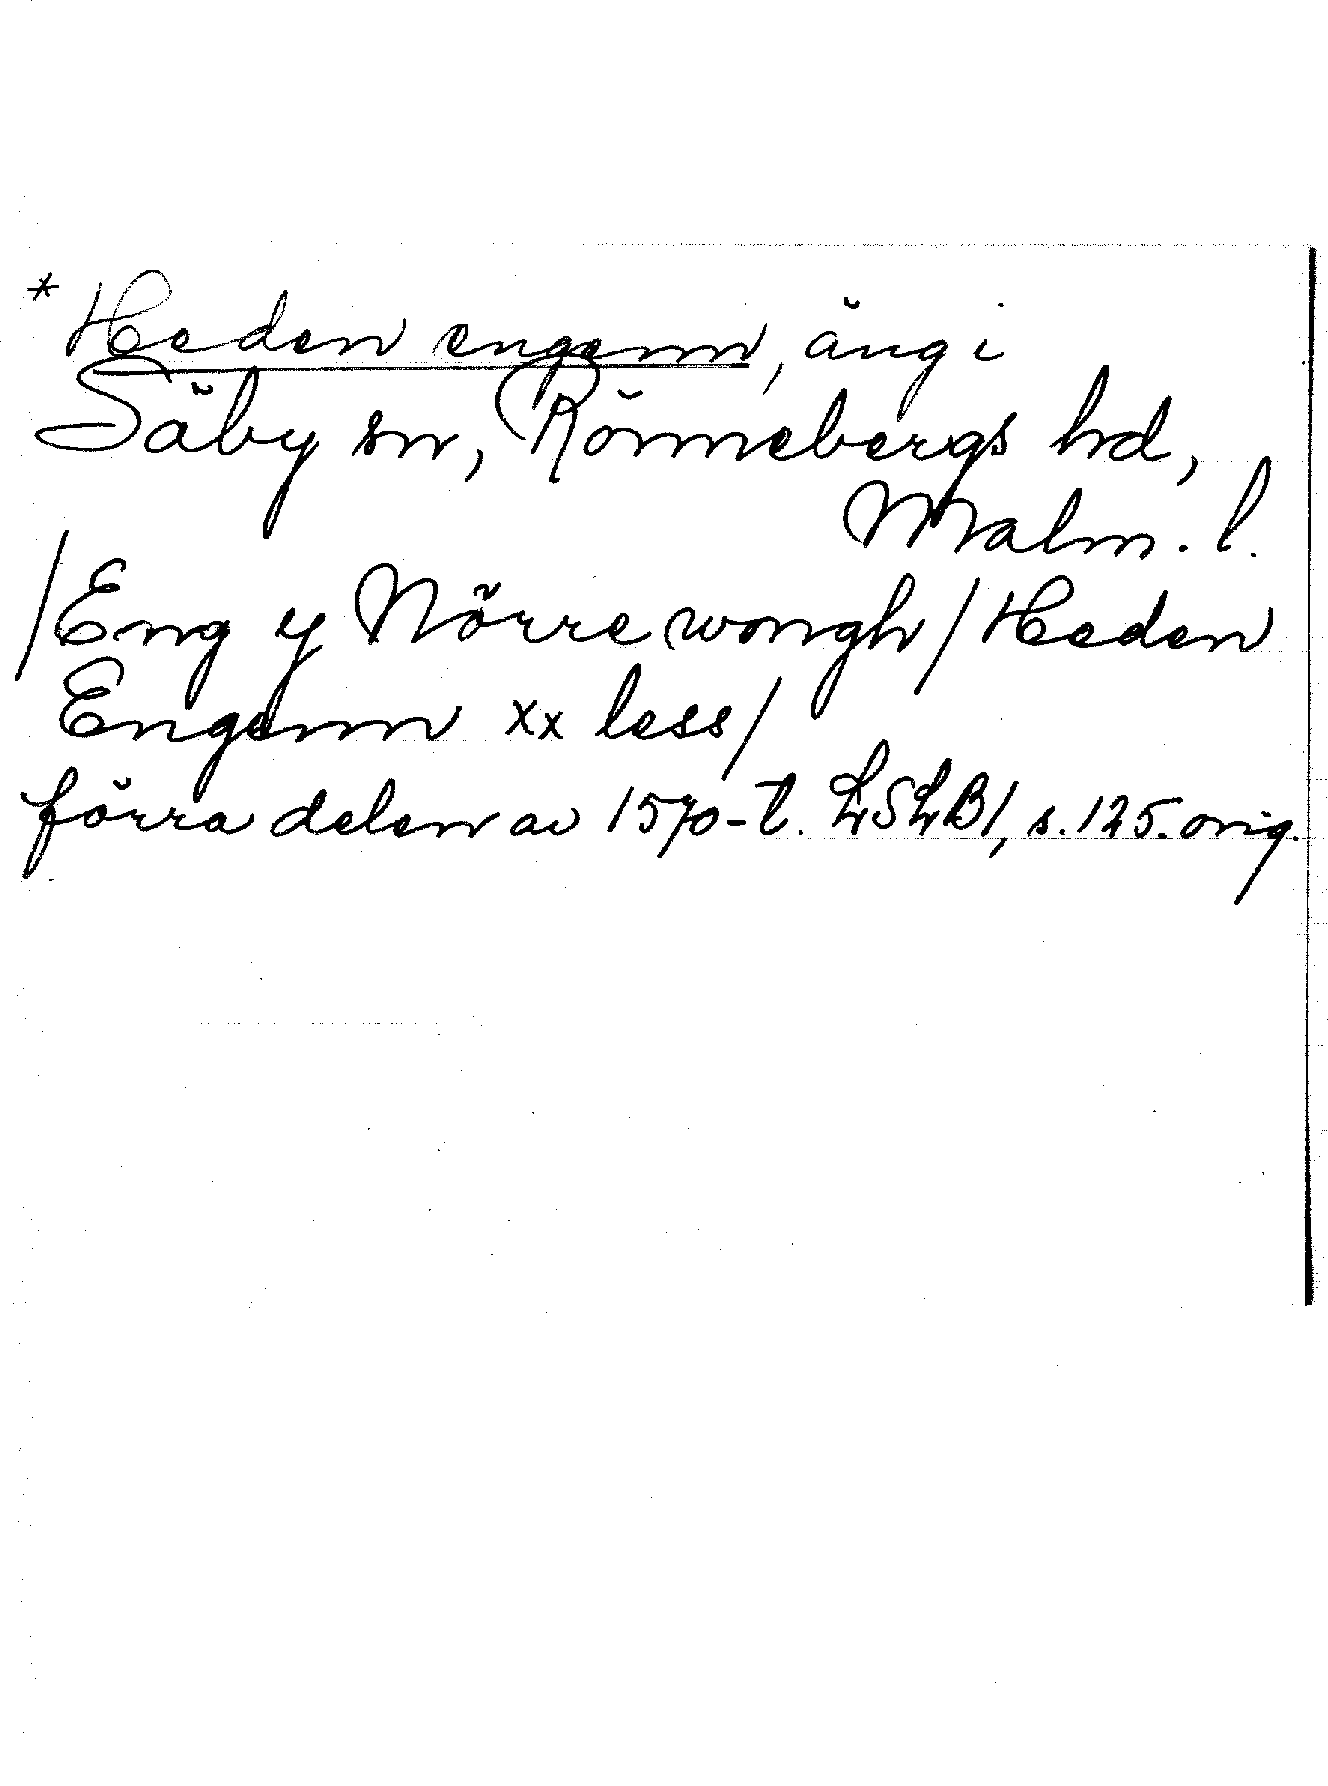 * Heden engenn, äng i
Säby sn, Rönnebergs hd,
Malm. l.
/Eng y Nörre wongh/Heden
Engenn xx less/
förra delen av 1570-t. LSLB1, s. 125. orig.